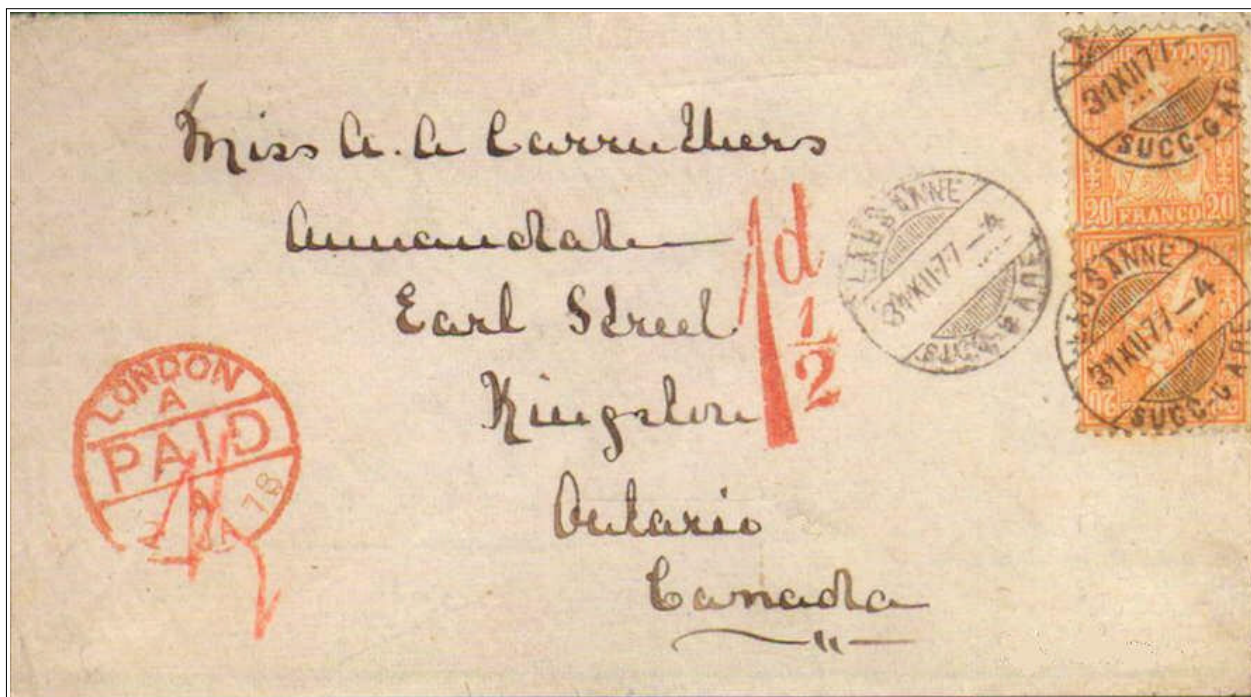 Miss A. A Carruthers
Annandale
Earl Street
Kingston
Ontario
Canada
1d
1/2
LAUSANNE
31 XII 77 – 4
SUCC-GARE
31 XII 77
SUCC-GARE
20 FRANCO 20
LAUSANNE
31 XII 77 – 4
SUCC-GARE
20
LONDON
A
PAID
78